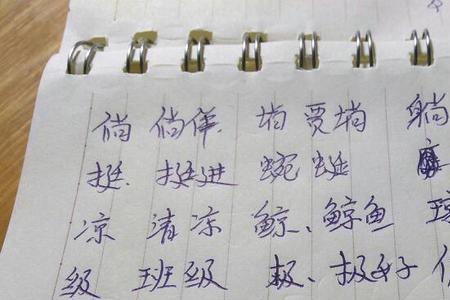 倘 倘佯 埫 贾埫 躺
挺 挺进 蜿蜒
凉 清凉 鲸、鲸鱼 琼
级 班级 极、极好